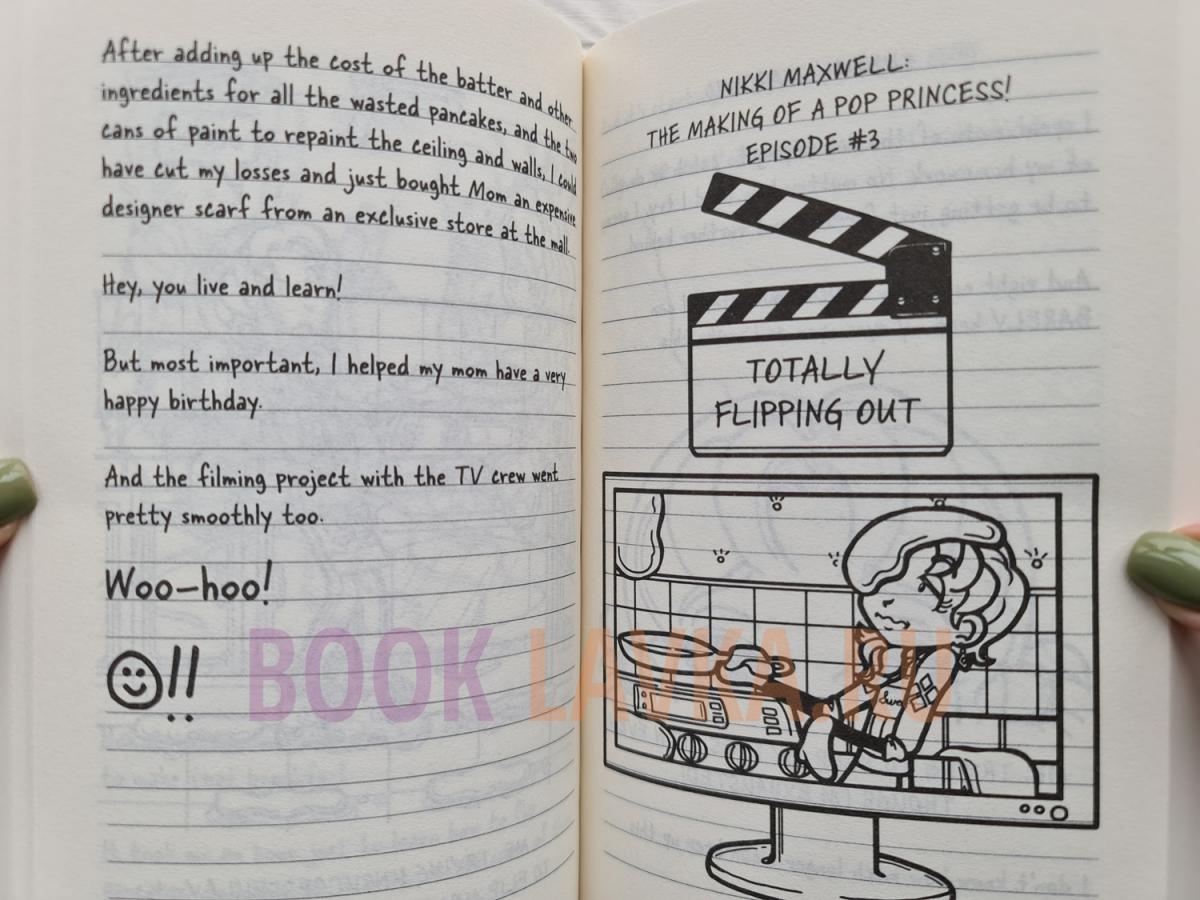 After adding up the cost of the batter and other
ingredients for all the wasted pancakes, and the two
cans of paint to repaint the ceiling and walls, I could
have cut my losses and just bought Mom an expensive
designer scarf from an exclusive store at the mall.
Hey, you live and learn!
But most important, I helped my mom have a very
happy birthday.
And the filming project with the TV crew went
pretty smoothly too.
Woo-hoo!
!!
NIKKI MAXWELL:
THE MAKING OF A POP PRINCESS!
EPISODE #3
TOTALLY
FLIPPING OUT
BOOK LAVKA.RU